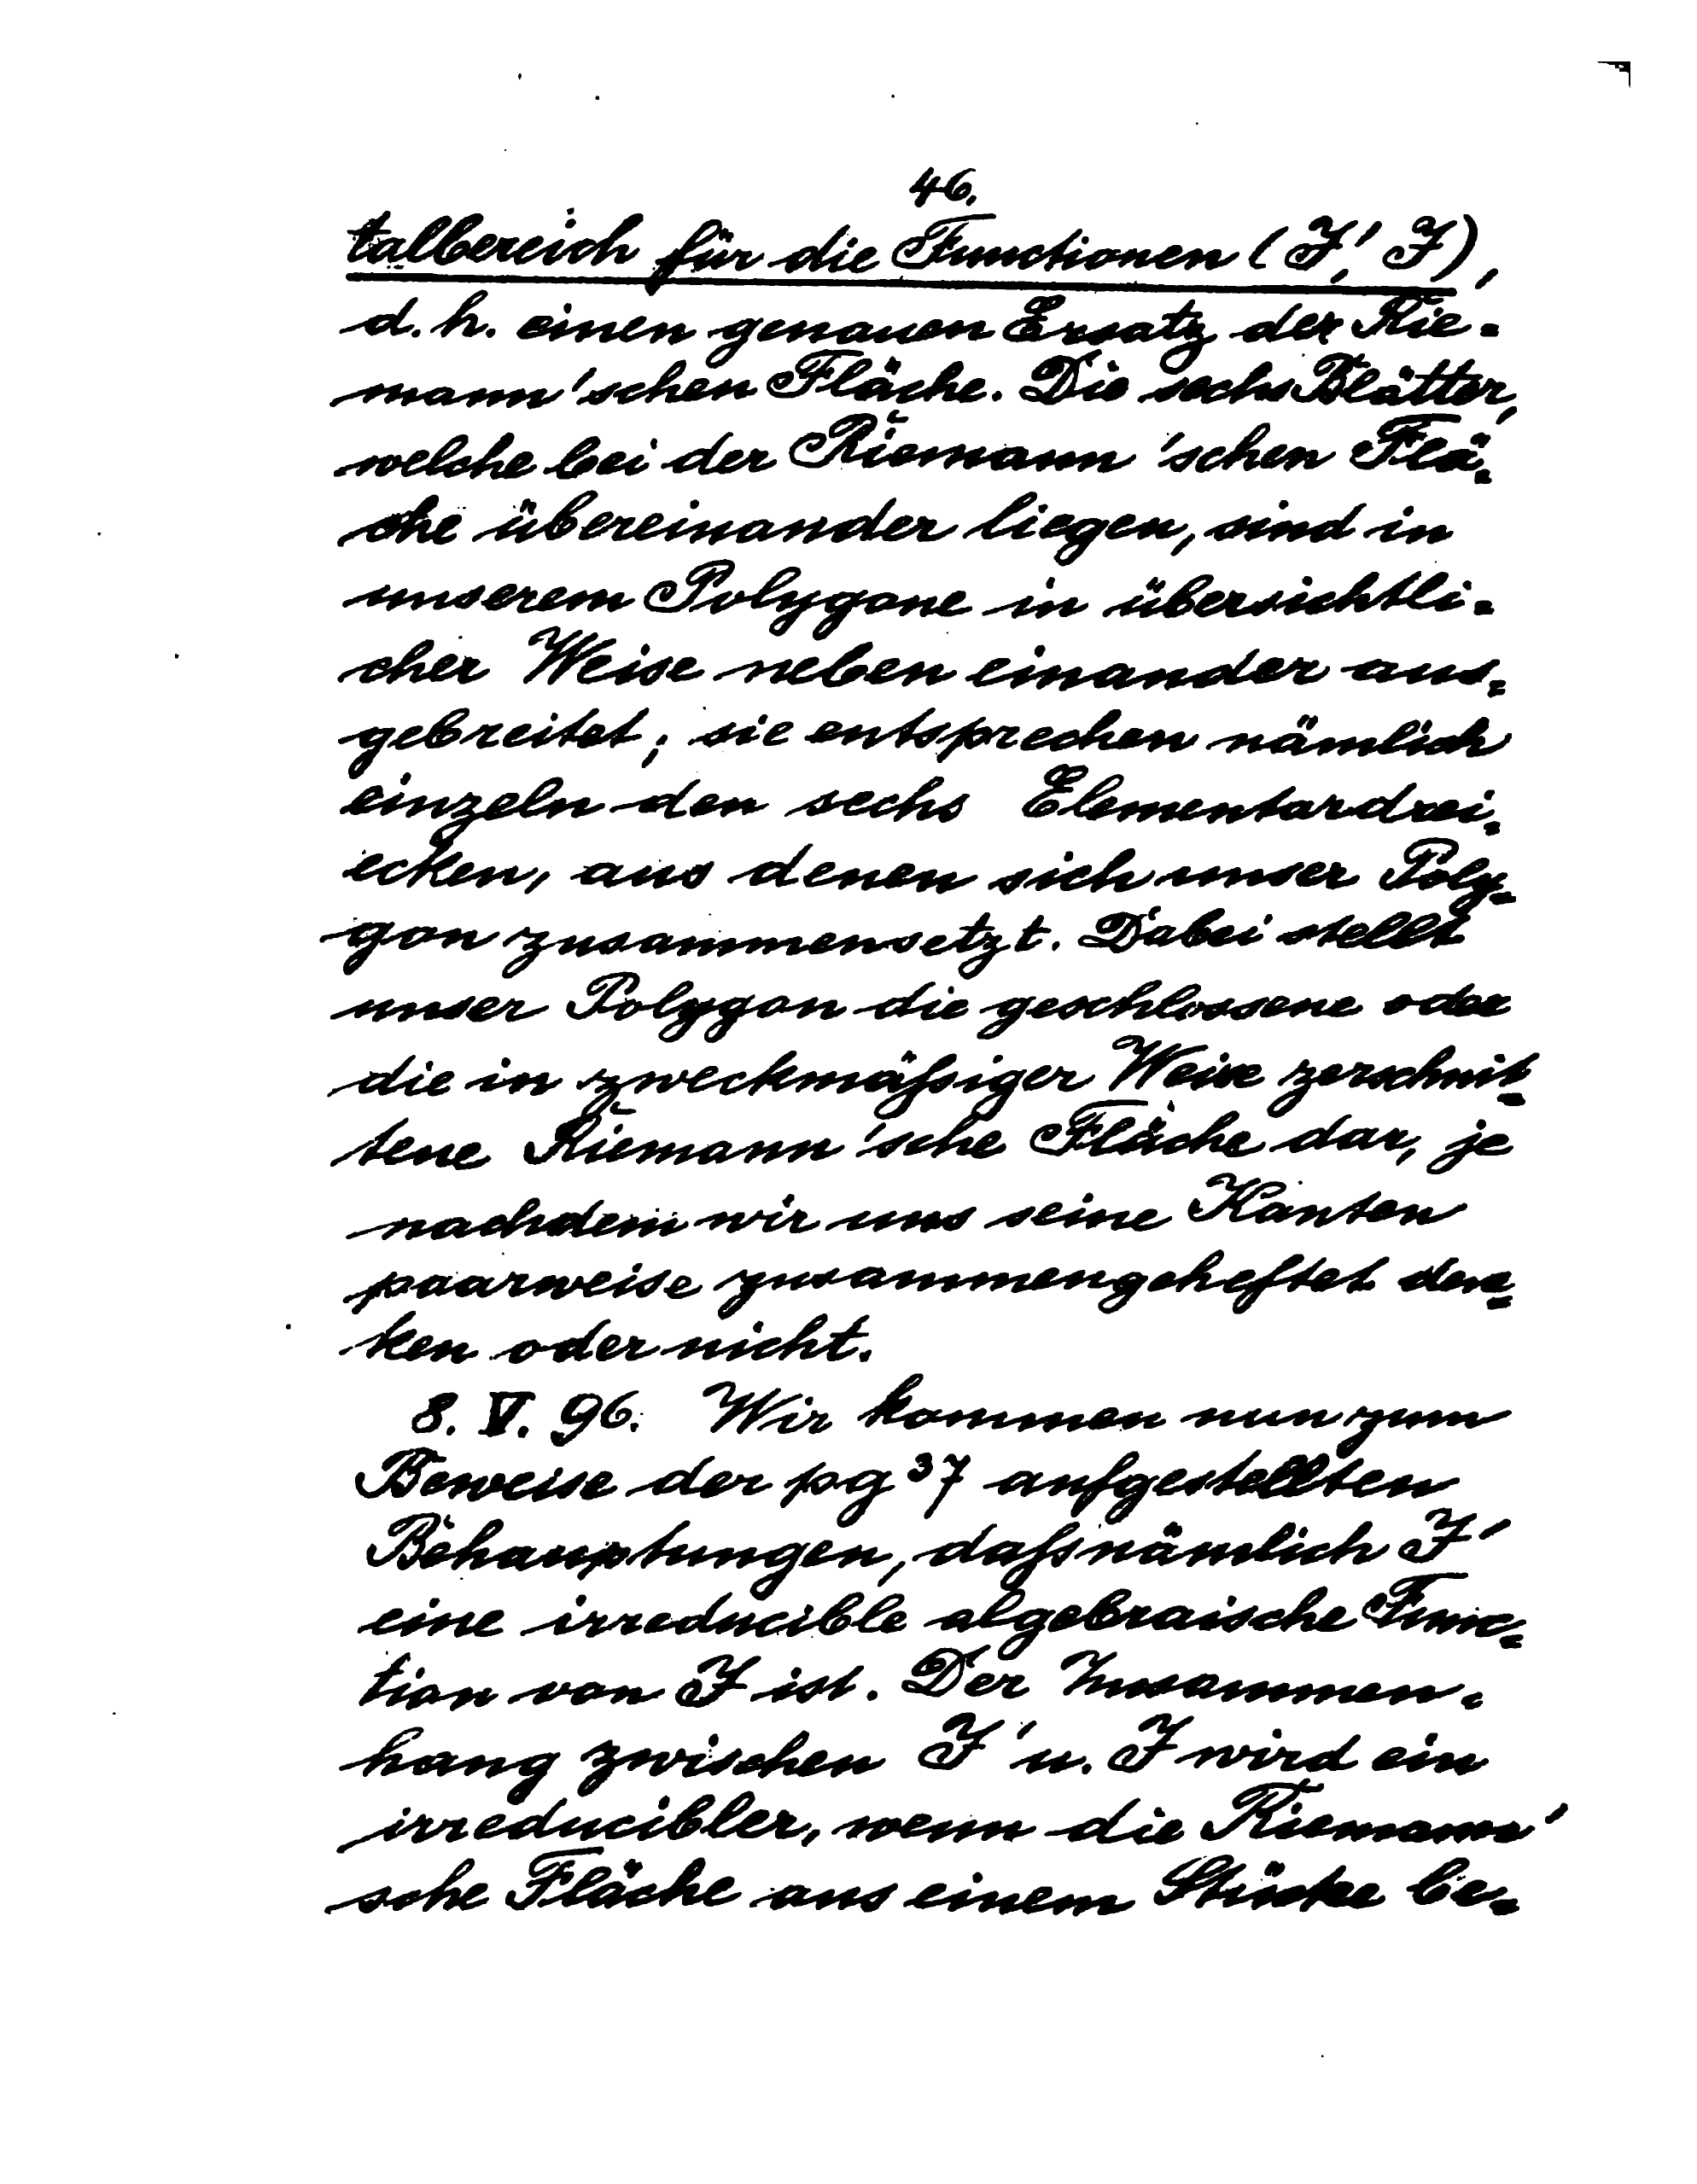 46.
talbereich für die Functionen (J', J),
d. h. einen genauen Ersatz der Rie-
mann'schen Fläche. Die sechs Blätter,
welche bei der Riemann'schen Flä-
che übereinander liegen, sind in
unserem Polygone in übersichtli-
cher Weise neben einander aus-
gebreitet; sie entsprechen nämlich
einzeln den sechs Elementardrei-
ecken, aus denen sich unser Poly-
gon zusammensetzt. Dabei stellt
unser Polygon die geschlossene oder
die in zweckmäßiger Weise zerschnit-
tene Riemann'sche Fläche dar, je
nachdem wir uns seine Kanten
paarweise zusammengeheftet den-
ken oder nicht.
8. V. 96. Wir kommen nun zum
Beweise der pg 37 aufgestellten
Behauptungen, daß nämlich J'
eine irreducible algebraische Func-
tion von J ist. Der Zusammen-
hang zwischen J' u. J wird ein
irreducibler, wenn die Riemann'
sche Fläche aus einem Stücke be-